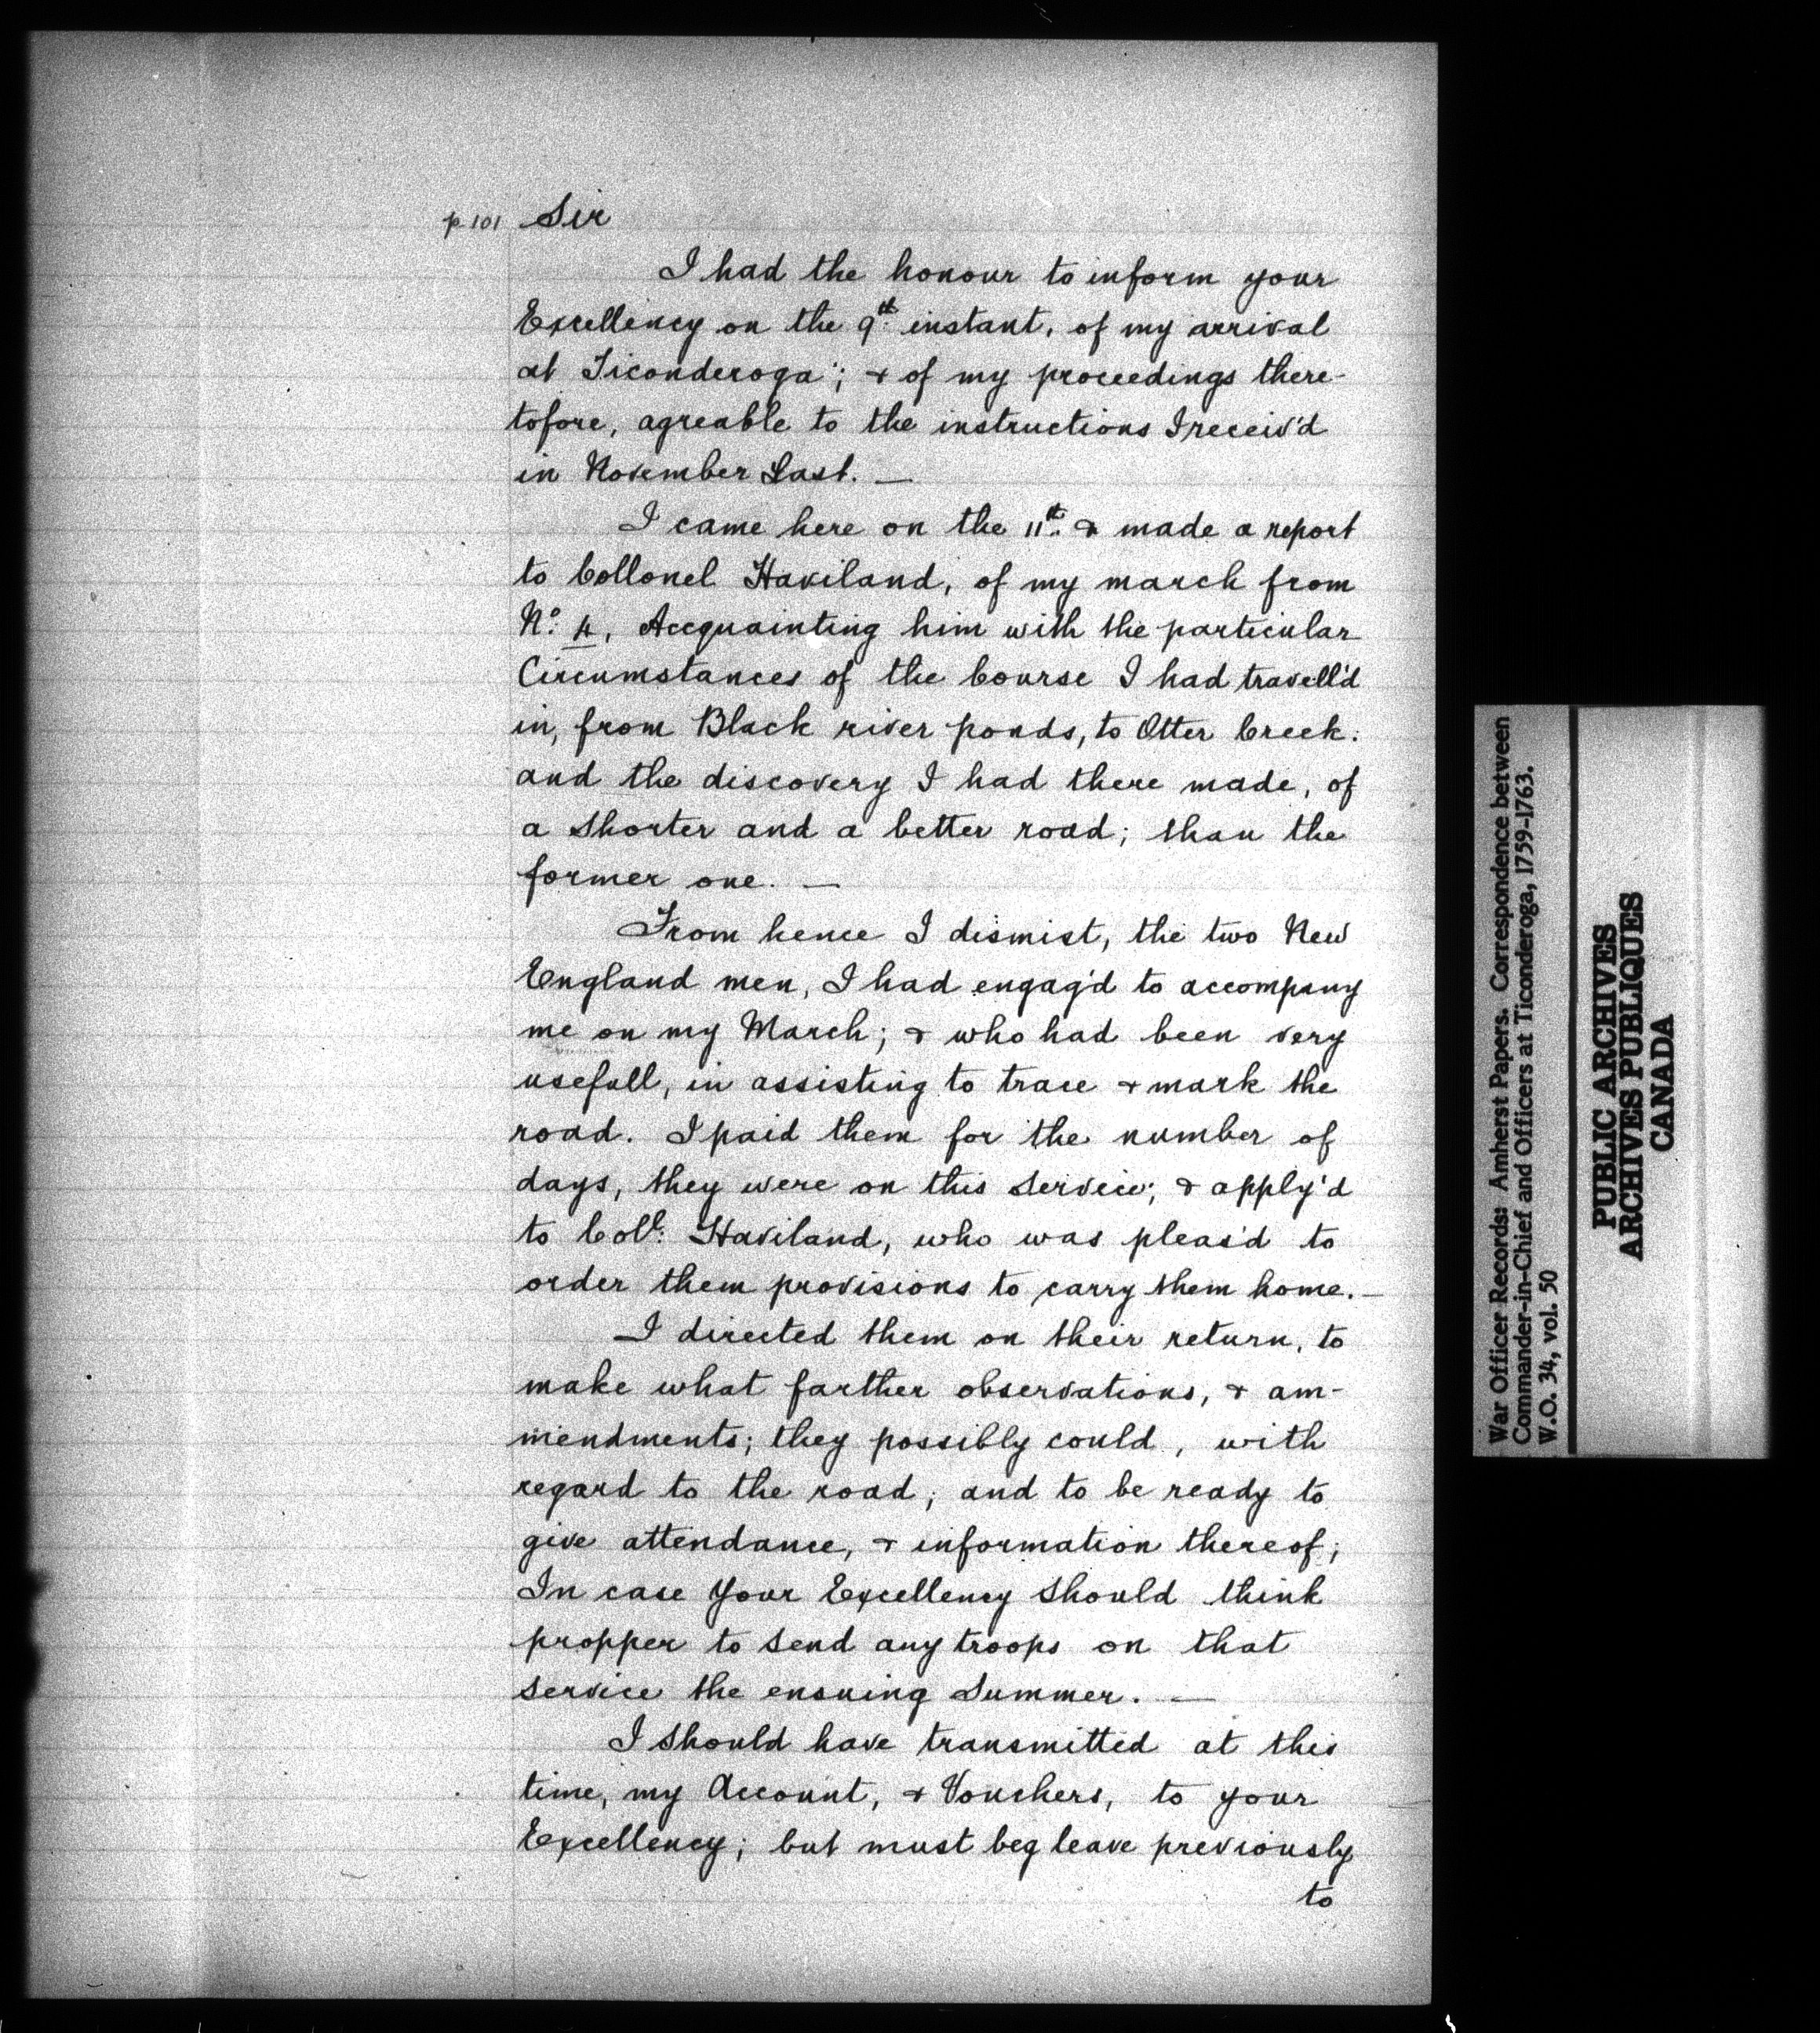 p 101 Sir
I had the honour to inform your
Excellency on the 9th instant, of my arrival
at Ticonderoga; & of my proceedings there-
tofore, agreable to the instructions I receiv'd
in November Last. —
I came here on the 11th. & made a report
to Collonel Haviland, of my march from
No. 4, Accquainting him with the particular
Circumstances of the Course I had travell'd
in, from Black river ponds, to Otter Creek.
and the discovery I had there made, of
a Shorter and a better road; than the
former one. —
From hence I dismist, the two New
England men, I had engag'd to accompany
me on my March; & who had been very
usefull, in assisting to trace & mark the
road. I paid them for the number of
days, they were on this Service; & apply'd
to Coll: Haviland, who was pleas'd to
order them provisions to carry them home. —
I directed them on their return, to
make what farther observations, & am-
mendments; they possibly could, with
regard to the road; and to be ready to
give attendance, & information thereof;
In case Your Excellency Should think
propper to Send any troops on that
Service the ensuing Summer. —
I Should have transmitted at this
time, my Account, & Vouchers, to your
Excellency; but must beg leave previously
to
War Officer Records: Amherst Papers. Correspondence between
Commander-in-Chief and Officers at Ticonderoga, 1759-1763.
W.O. 34, vol. 50
PUBLIC ARCHIVES
ARCHIVES PUBLIQUES
CANADA